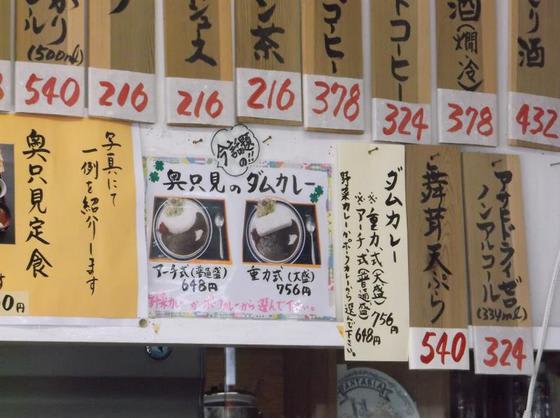 ル
(500ml)
540
216
ュース
216
ン茶
216
コーヒー
378
トコーヒー
324
酒
(燗冷)
378
り酒
432
写真にて
一例を紹介します
奥只見定食
0円
今話題の!!
奥只見のダムカレー
アーチ式(普通盛)
648円
重力式(大盛)
756円
野菜カレーかポークカレーから選んで下さい。
ダムカレー
※重力式(大盛) 756円
※アーチ式(普通盛) 648円
野菜カレーかポークカレーから選んで下さい。
舞茸天ぷら
540
アサヒドライゼロ
ノンアルコール
(334ml)
324